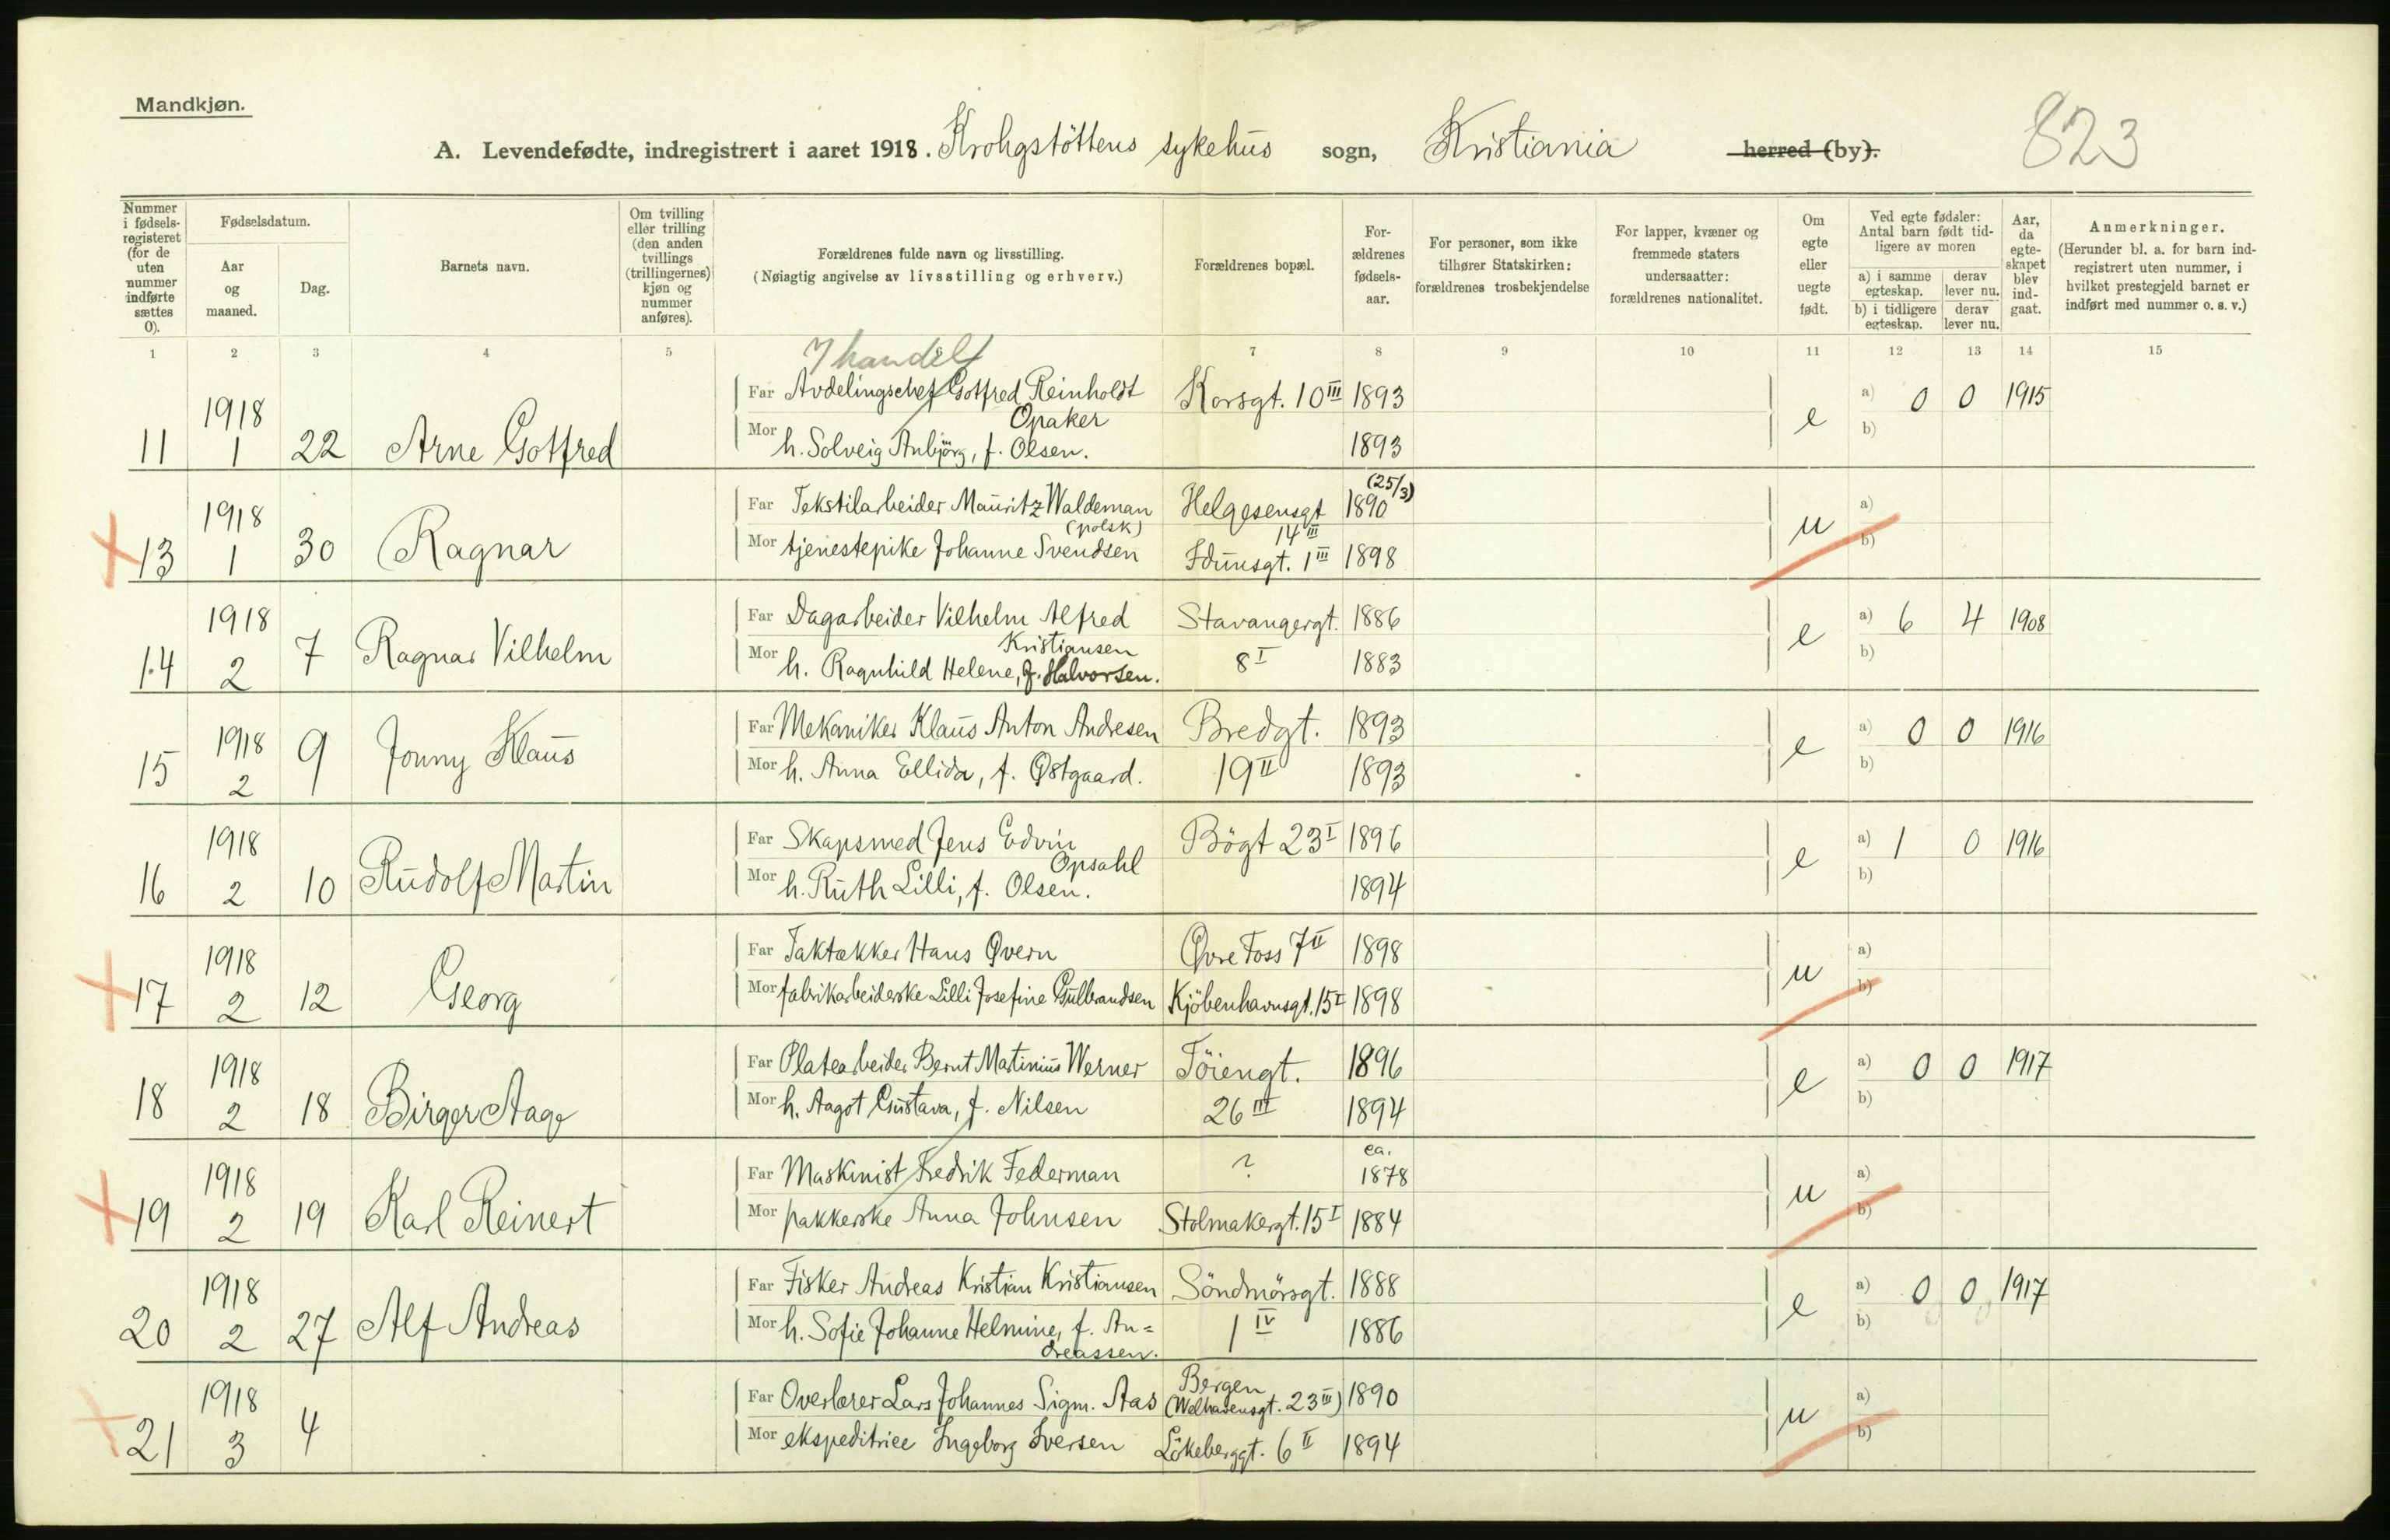 Mandkjøn.
A. Levendefødte, indregistrert i aaret 1918. Krohgstöttens sykehus sogn, Kristiania herred (by).
823
Nummer i fødsels-registeret (for de uten nummer indførte sættes 0).
Fødselsdatum.
Aar og maaned.
Dag.
Barnets navn.
Om tvilling eller trilling (den anden tvillings (trillingernes) kjøn og nummer anføres).
Forældrenes fulde navn og livsstilling.
(Nøiagtig angivelse av livsstilling og erhverv.)
Forældrenes bopæl.
For-ældrenes fødsels-aar.
For personer, som ikke tilhører Statskirken: forældrenes trosbekjendelse
For lapper, kvæner og fremmede staters undersaatter: forældrenes nationalitet.
Om egte eller uegte født.
Ved egte fødsler: Antal barn født tid-ligere av moren
a) i samme egteskap.
derav lever nu.
b) i tidligere egteskap.
derav lever nu.
Aar, da egte-skapet blev ind-gaat.
Anmerkninger.
(Herunder bl. a. for barn ind-registrert uten nummer, i hvilket prestegjeld barnet er indført med nummer o. s. v.)
1 2 3 4 5 6 7 8 9 10 11 12 13 14 15
I handel
1918 Far Avdelingschef Gotfred Reinholdt Opaker Korsgt. 10 III 1893 a) 0 0 1915
11 1 22 Arne Gotfred Mor h. Solveig Anbjörg, f. Olsen. 1893 e b)
1918 Far Tekstilarbeider Mauritz Waldeman (polsk) Helgesensgt 14 III (25/3) 1890 a)
13 1 30 Ragnar Mor tjenestepike Johanne Svendsen Idunsgt. 1 III 1898 u b)
1918 Far Dagarbeider Vilhelm Alfred Kristiansen Stavangergt. 1886 a) 6 4 1908
14 2 7 Ragnar Vilhelm Mor h. Ragnhild Helene, f. Halvorsen. 8 I 1883 e b)
1918 Far Mekaniker Klaus Anton Andresen Bredgt. 1893 a) 0 0 1916
15 2 9 Jonny Klaus Mor h. Anna Ellida, f. Østgaard. 19 II 1893 e b)
1918 Far Skapsmed Jens Edvin Opsahl Bögt 23 I 1896 a) 1 0 1916
16 2 10 Rudolf Martin Mor h. Ruth Lilli, f. Olsen. 1894 e b)
1918 Far Taktækker Hans Øvern Øvre Foss 7 II 1898 a)
17 2 12 Georg Mor fabrikarbeiderske Lilli Josefine Gulbrandsen Kjöbenhavnsgt. 15 I 1898 u b)
1918 Far Platearbeider Bernt Martinius Werner Töiengt. 1896 a) 0 0 1917
18 2 18 Birger Aage Mor h. Aagot Gustava, f. Nilsen 26 III 1894 e b)
1918 Far Maskinist Fredrik Federman ? ca. 1878 a)
19 2 19 Karl Reinert Mor pakkerske Anna Johnsen Stolmakergt. 15 I 1884 u b)
1918 Far Fisker Andreas Kristian Kristiansen Söndmörsgt. 1888 a) 0 0 1917
20 2 27 Alf Andreas Mor h. Sofie Johanne Helmine, f. An=dreassen. 1 IV 1886 e b)
1918 Far Overlærer Lars Johannes Sigm. Aas Bergen (Welhavensgt. 23 III) 1890 a)
21 3 4 Mor ekspeditrice Ingeborg Iversen Lökeberggt. 6 II 1894 u b)